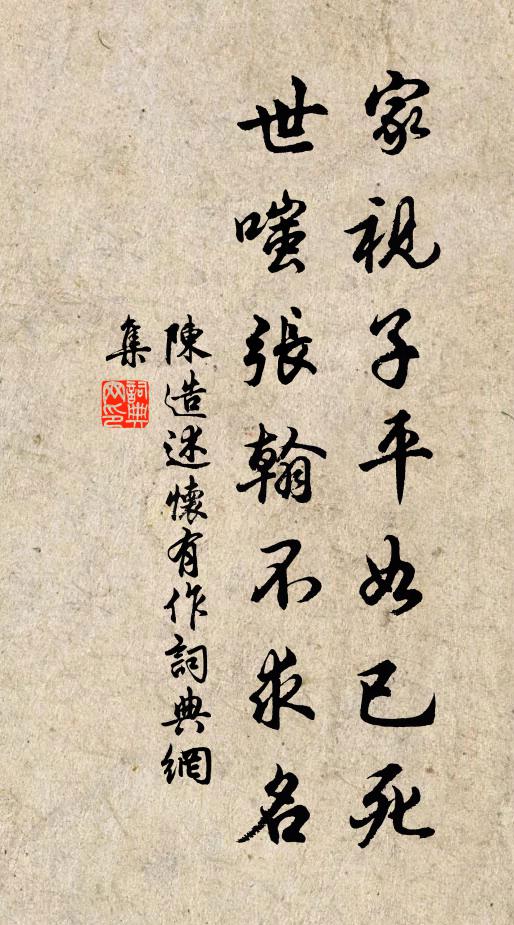 家視子平如已死
世嗤張翰不求名
陳造述懷有作詞典網
集
詞典
网印